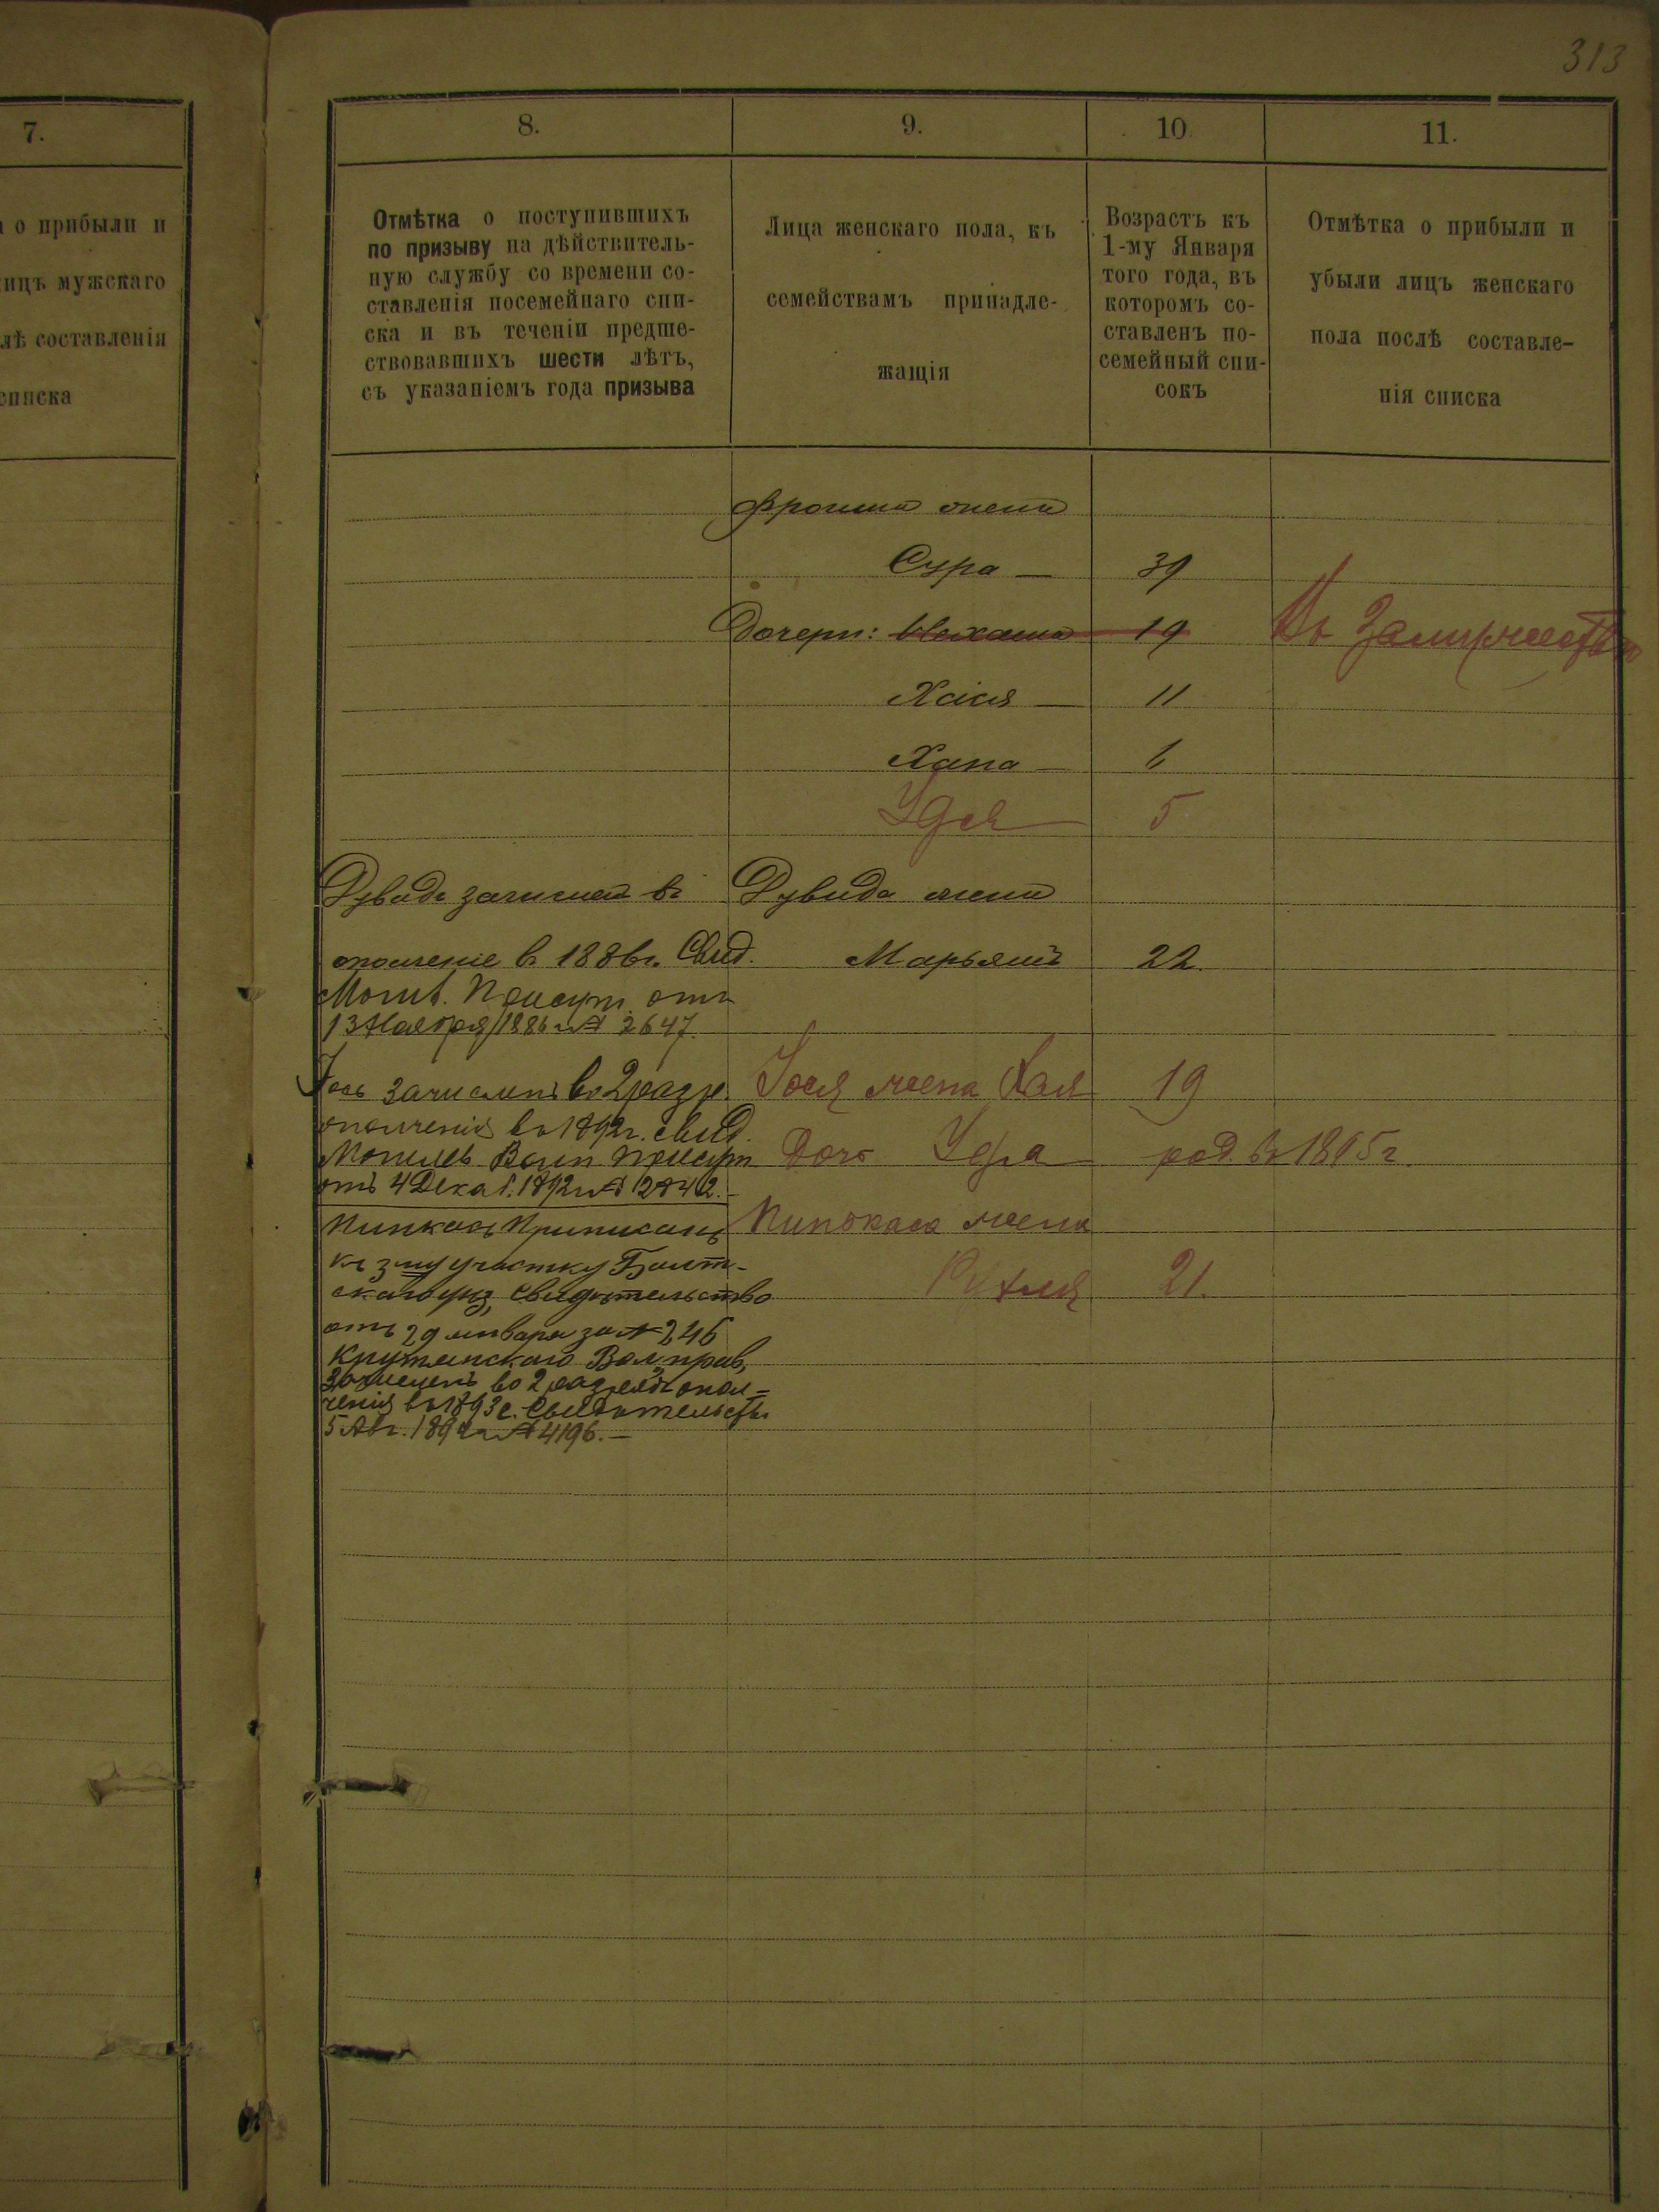 313
7.
о прибыли и
ицъ мужскаго
лѣ составленія
списка
8.
9.
10.
11.
Отмѣтка о поступившихъ
по призыву на дѣйствитель-
ную службу со времени со-
ставленія посемейнаго спи-
ска и въ теченіи предше-
ствовавшихъ шести лѣтъ,
съ указаніемъ года призыва
Лица женскаго пола, къ
семействамъ принадле-
жащія
Возрастъ къ
1-му Января
того года, въ
которомъ со-
ставленъ по-
семейный спи-
сокъ
Отмѣтка о прибыли и
убыли лицъ женскаго
пола послѣ составле-
нія списка
Фроима жена
Сура — 39
Дочери: 19 Въ Замужествѣ
Хаія — 11
Хана — 6
Удя 5
Дувидъ зачисленъ въ
ополченіе въ 1886г. Свид.
Могил. Присут. отъ
13 Ноября 1886 № 2647.
Дувида жена
Марьямъ 22.
Іось зачисленъ во 2 разр.
ополченія въ 1892г. свид.
Могилев. Воин присут
отъ 4 Декаб. 1892 №
Іося жена Хая 19
Дочь род. въ 1895г.
Пинкасъ Приписанъ
къ 3му участку Балт-
скаго уѣз, Свидѣтельство
отъ 29 января за № 246
Крутянскаго Вол. прав,
Зачисленъ во 2 разрядъ опол-
ченія въ 1893г. Свидѣтельств.
5 Авг. 189 № 4196.—
Пинкаса жена
21.